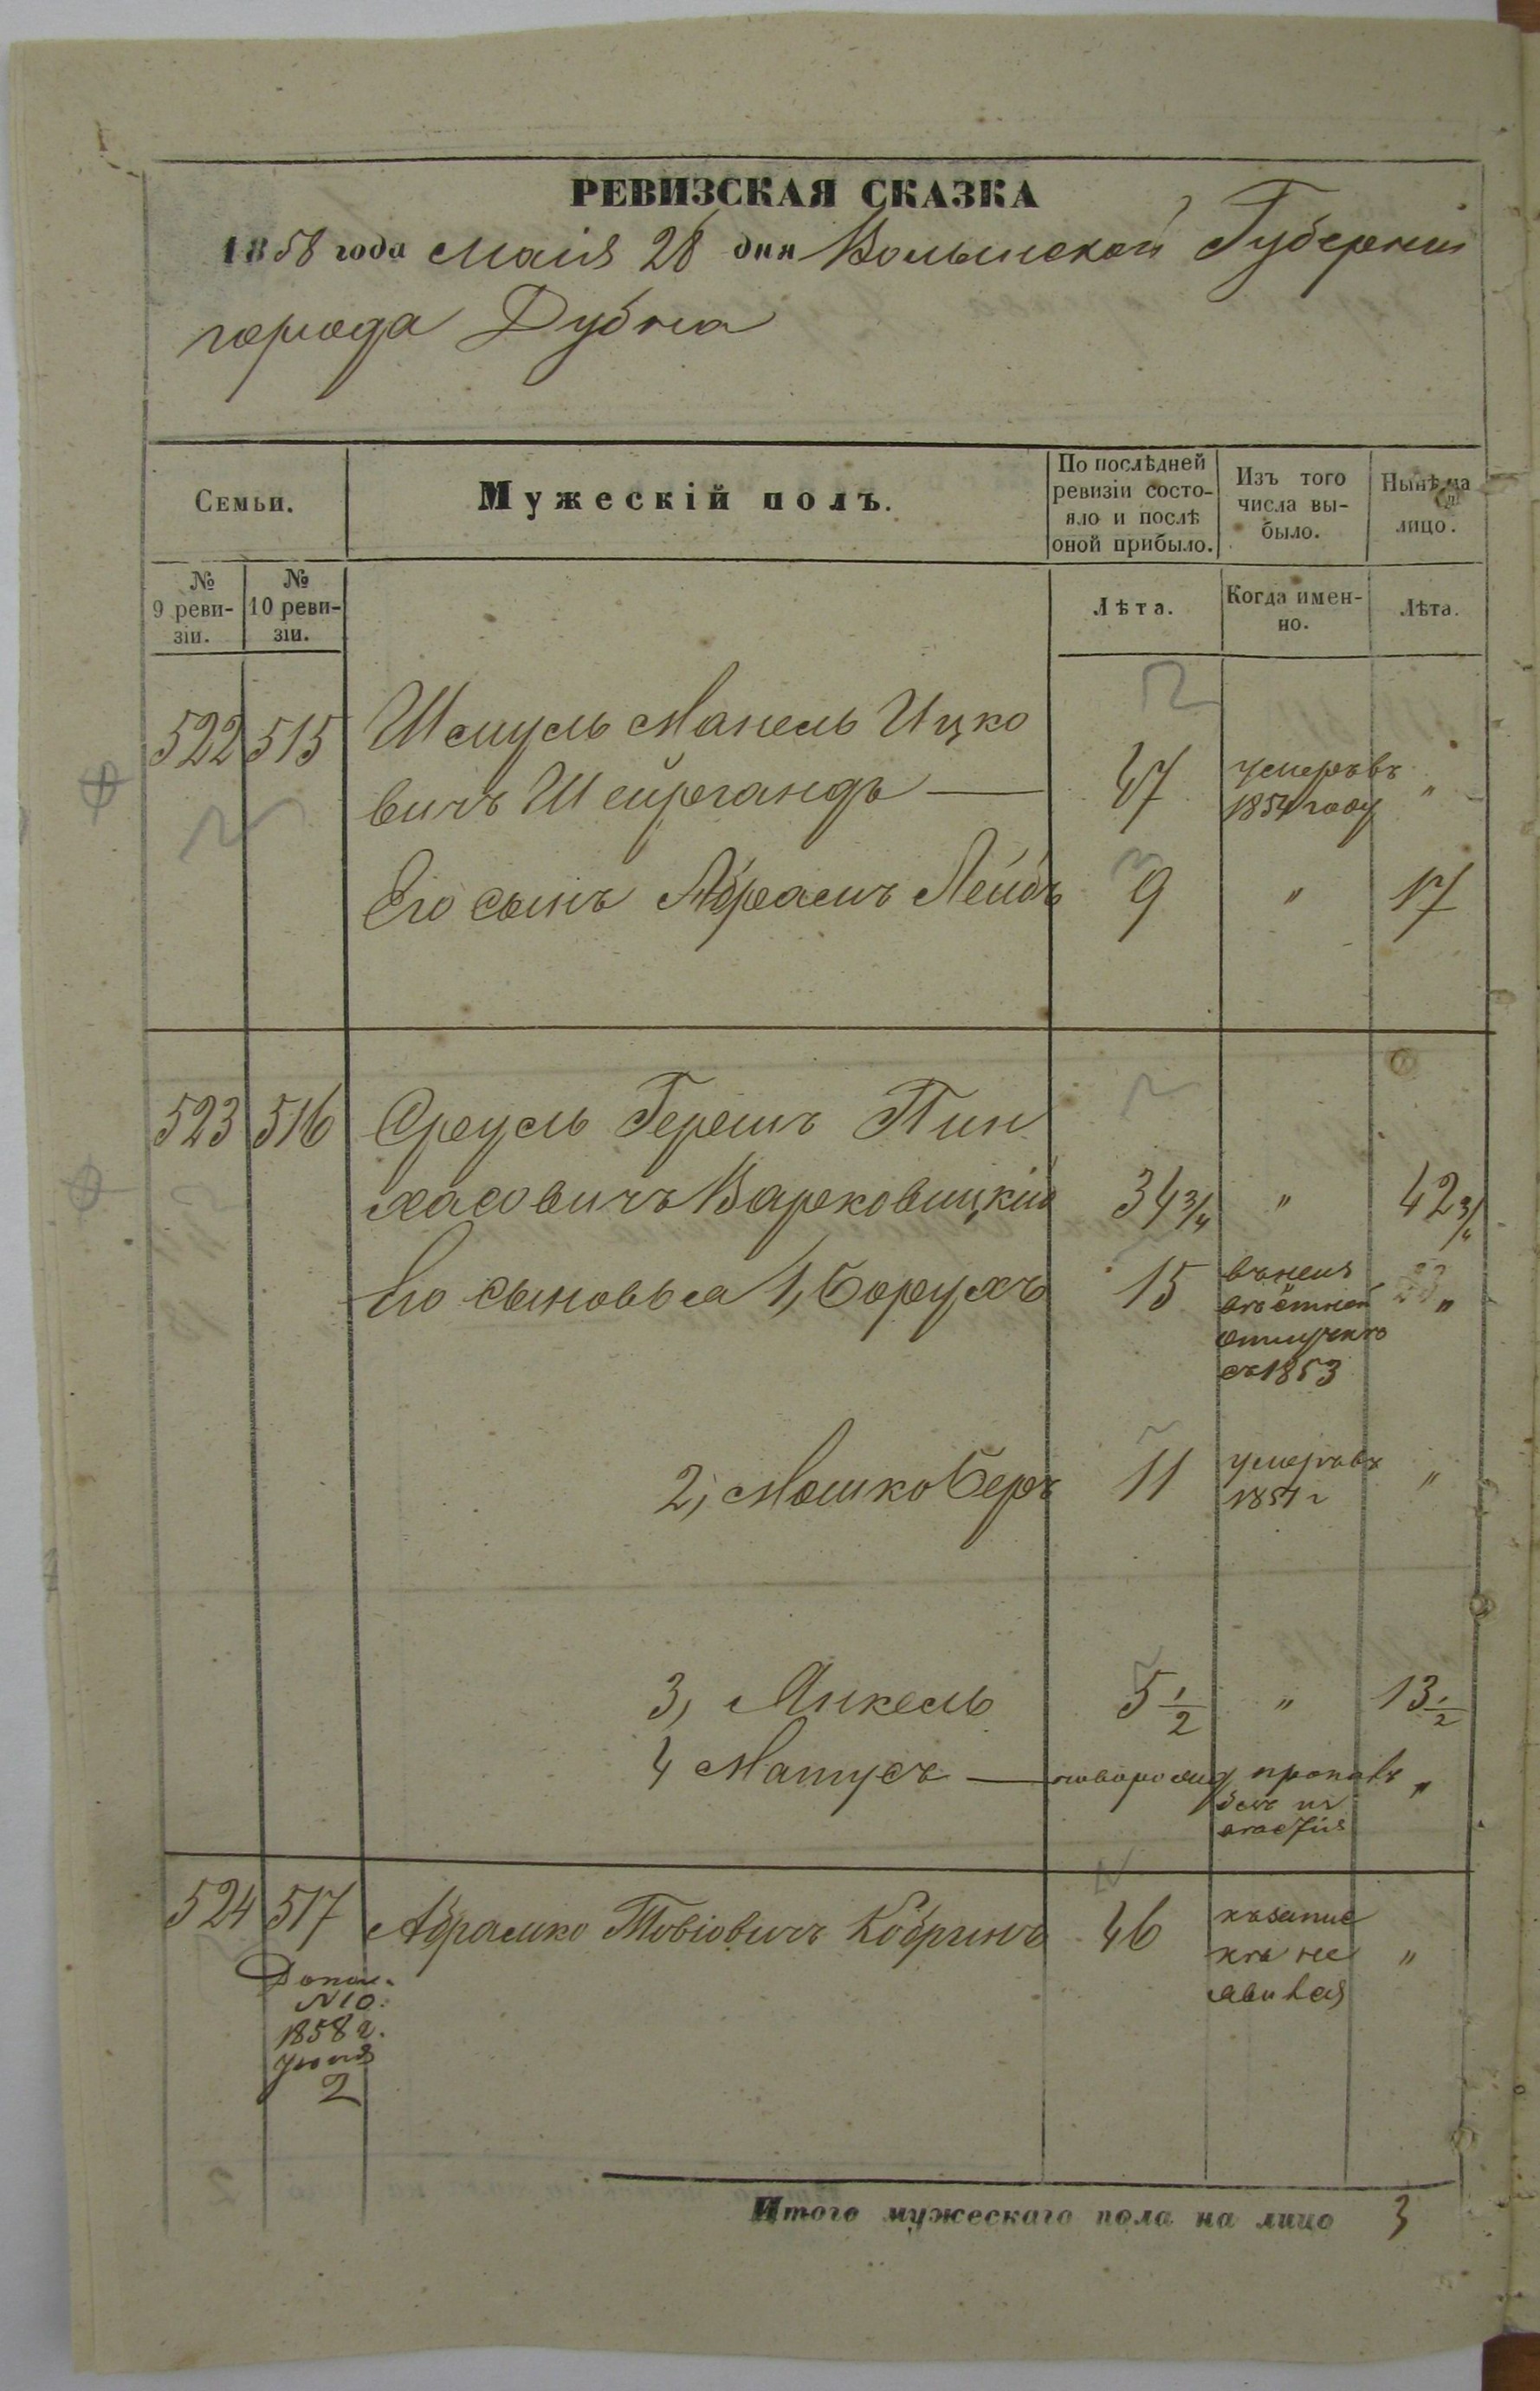 РЕВИЗСКАЯ СКАЗКА
1858 года Маія 28 дня Волынской Губерніи
города Дубна
Семьи.
Мужескій полъ.
По послѣдней
ревизіи состо-
яло и послѣ
оной прибыло.
Изъ того
числа вы-
было.
Нынѣ на
лицо.
№
9 реви-
зіи.
№
10 реви-
зіи.
Лѣта.
Когда имен-
но.
Лѣта.
522 515 Шмуль Манель Ицко
вичъ 47 умеръ въ "
1854 году
Его сынъ Абрамъ Лейбъ 9 " 17
523 516 Сруль Гершъ Пин
хасовичъ Варковицкій 34 3/4 " 42 3/4
Его сыновья 1, Борухъ 15 "
отлучкѣ
съ 1853
2, Мошко Беръ 11 умеръ въ "
1851 г
3, Янкель 5 1/2 " 13 1/2
4 Матусъ — "
524 517 Абрамко Товіовичъ Кобринъ 46 "
Допол.
N 10.
1858 г.
Іюня
2
Итого мужескаго пола на лицо 3